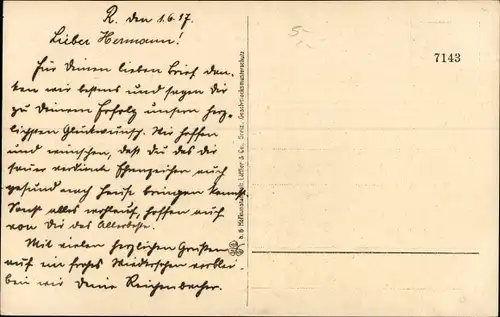 R. den 1.6.17.
Lieber Hermann!
Für deinen lieben Brief dan-
ken wir bestens und sagen dir
zu deinem Erfolg unsern herz-
lichsten Glückwunsch. Wir hoffen
und wünschen, daß du das dir
sauer verdiente Ehrenzeichen auch
gesund nach Hause bringen kannst.
Sonst alles wohlauf, hoffen auch
von dir das Allerbeste.
Mit vielen herzlichen Grüßen
auf ein frohes Wiedersehen verblei-
ben wir deine Reichenbacher.
5.-
7143
Löffler & Co., Greiz. Geschmacksmusterschutz